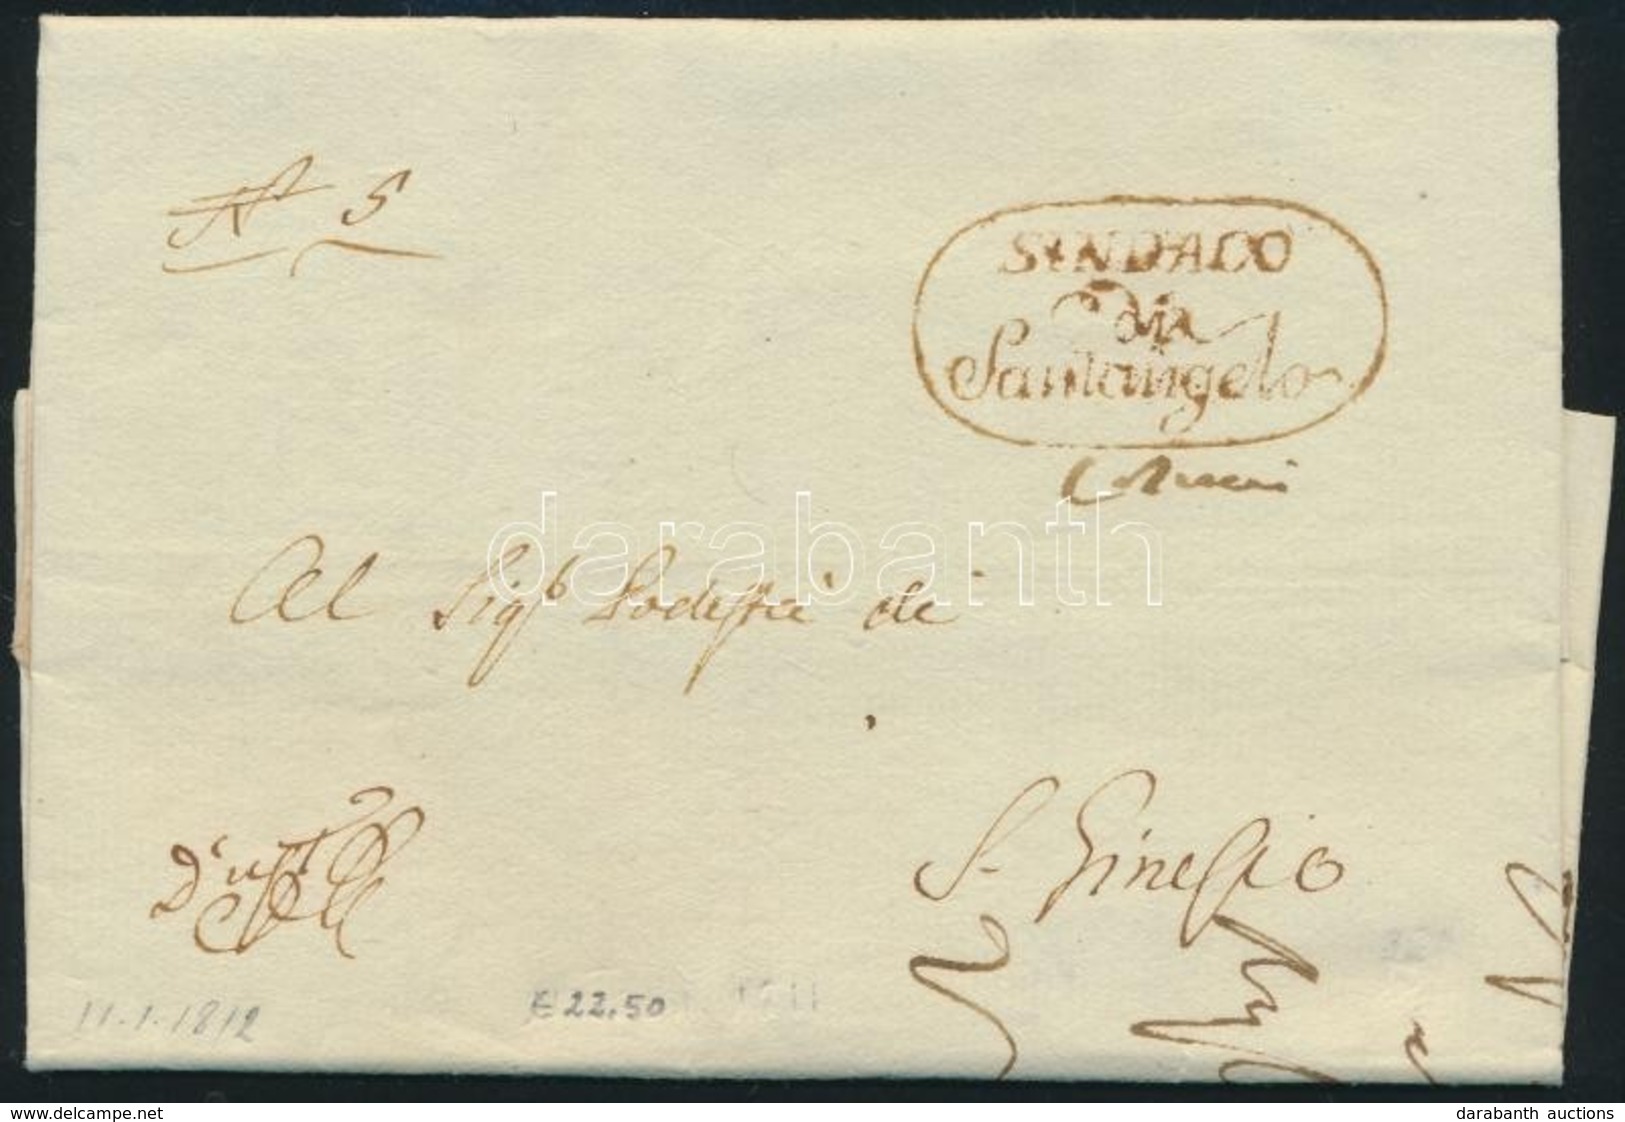 N 5
SINDACO
di
Santangelo
darabanth
Al Sigr Podestà di
S. Ginesio
11.1.1812
€22.50
www.delcampe.net
darabanth auctions